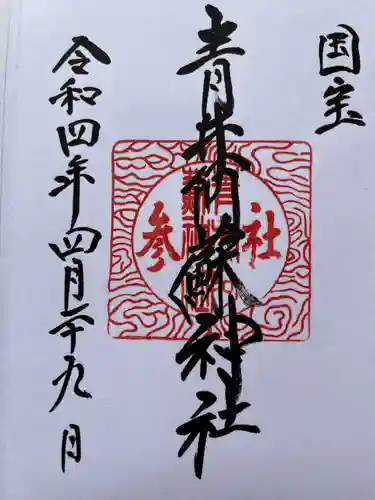 国宝
青井阿蘇神社
社参
令和四年四月二十九日